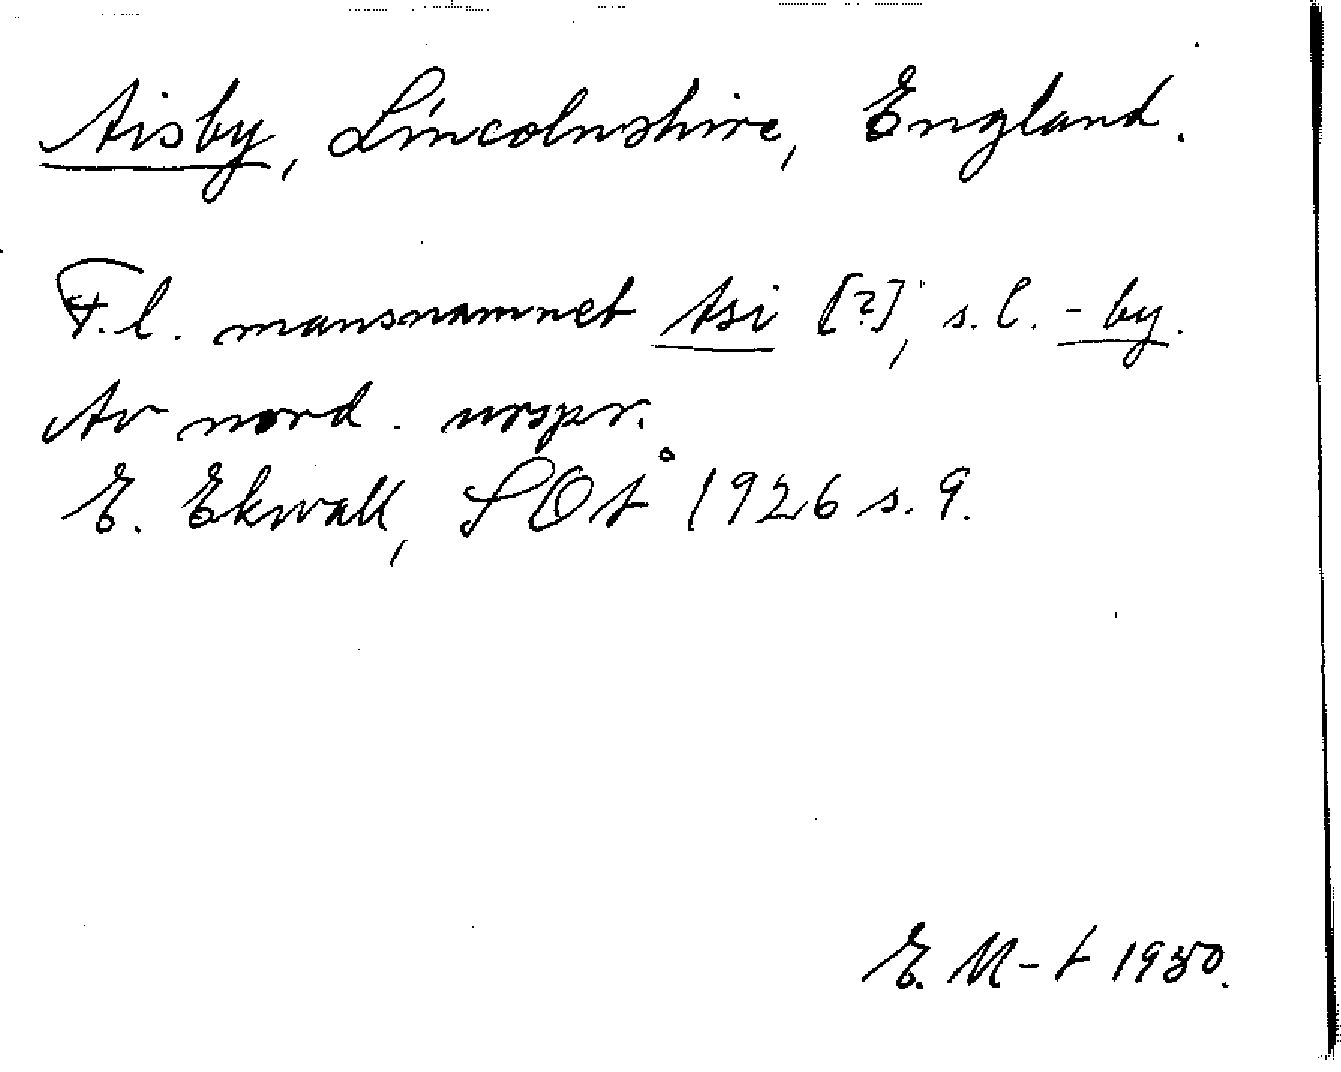 Aisby, Lincolnshire, England.
F.l. mansnamnet Asi [?], s.l. -by.
Av nord. urspr.
E. Ekwall, SOÅ 1926 s. 9.
E. M-t 1950.